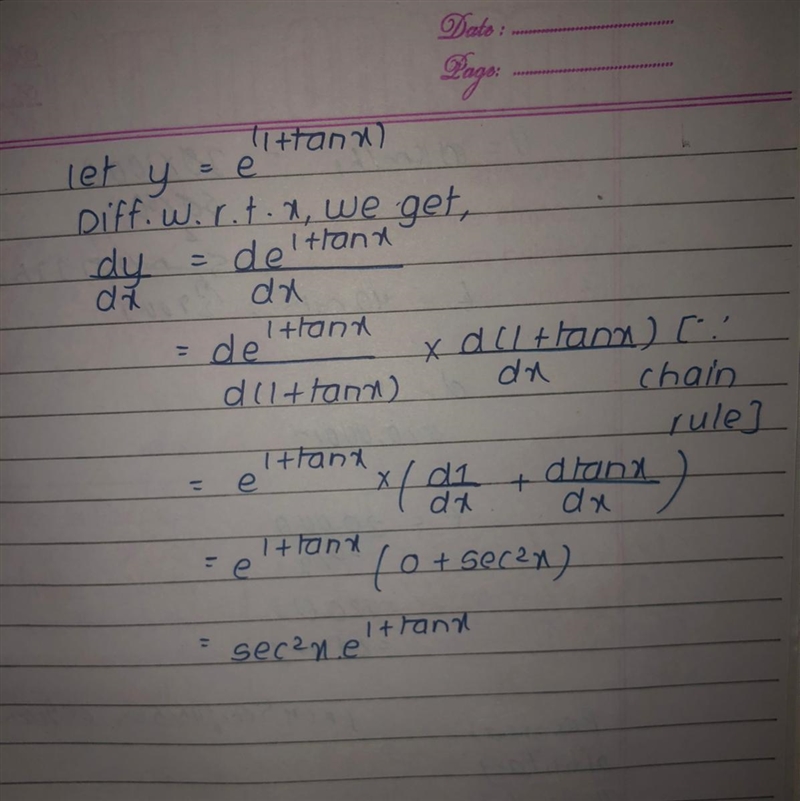 Date :
Page:
let y = e^(1+tanx)
Diff. w.r.t. x, we get,
dy/dx = de^1+tanx/dx
= de^1+tanx/d(1+tanx) × d(1+tanx)/dx [∵
chain
rule]
= e^1+tanx × (d1/dx + dtanx/dx)
= e^1+tanx (0 + sec²x)
= sec²x.e^1+tanx